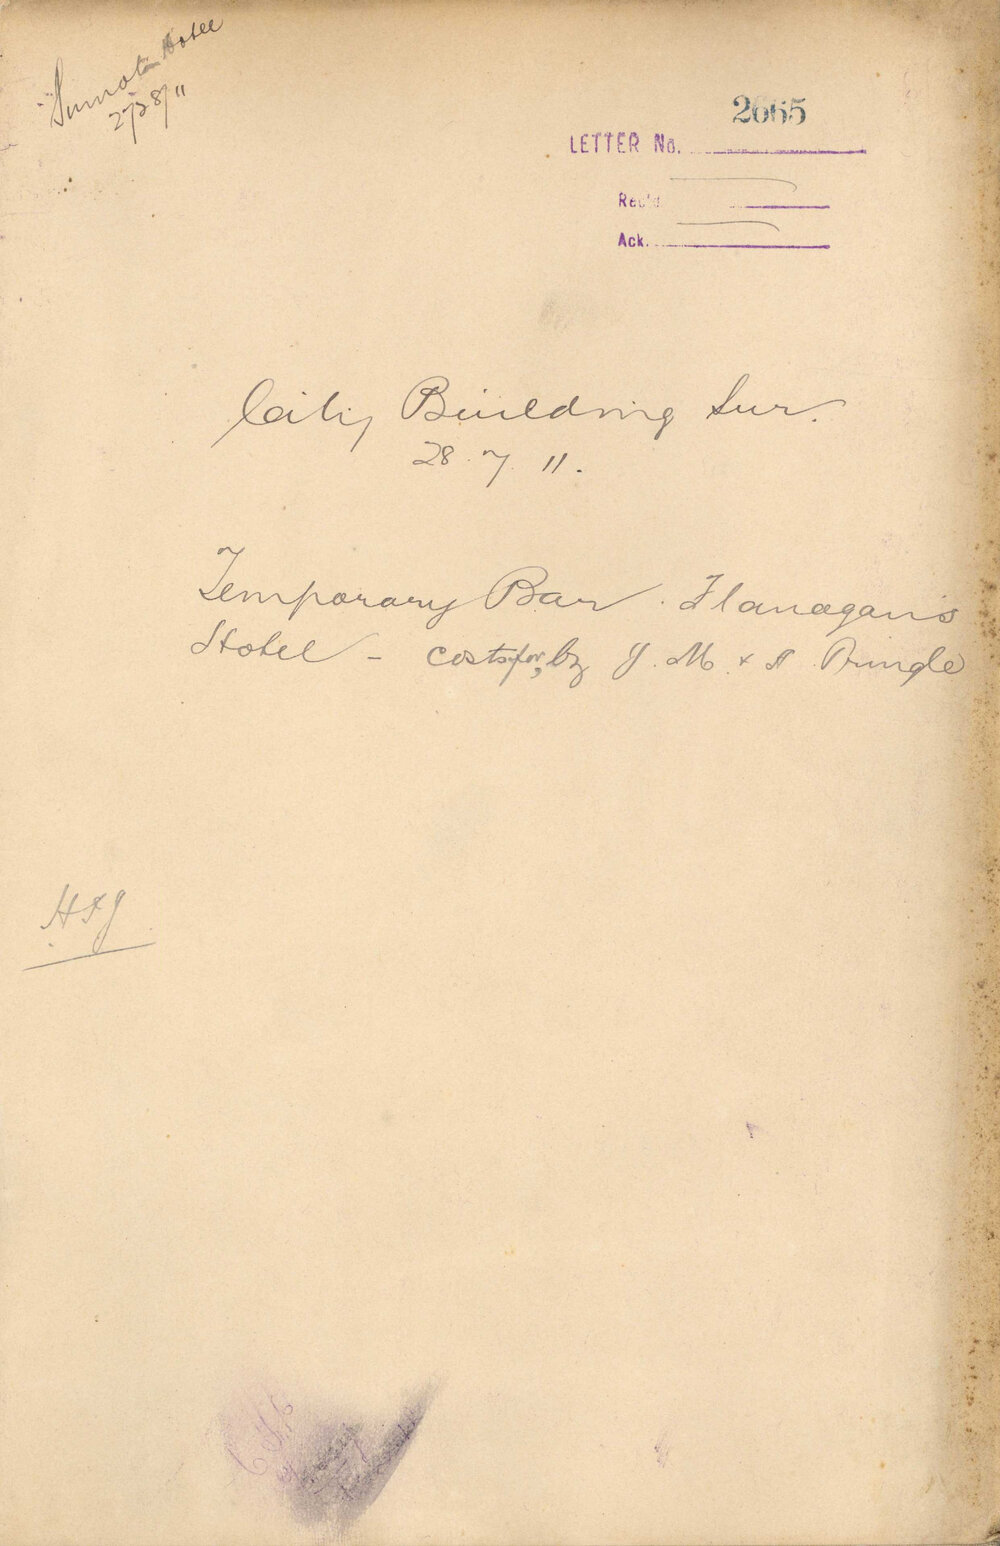 Sumata Hotel
27/28/11
2665
LETTER No.
Rec'd
Ack.
City Building Sur.
28. 7. 11.
Temporary Bar. Flanagan's
Hotel - costs for, by J. M. & A. Pringle